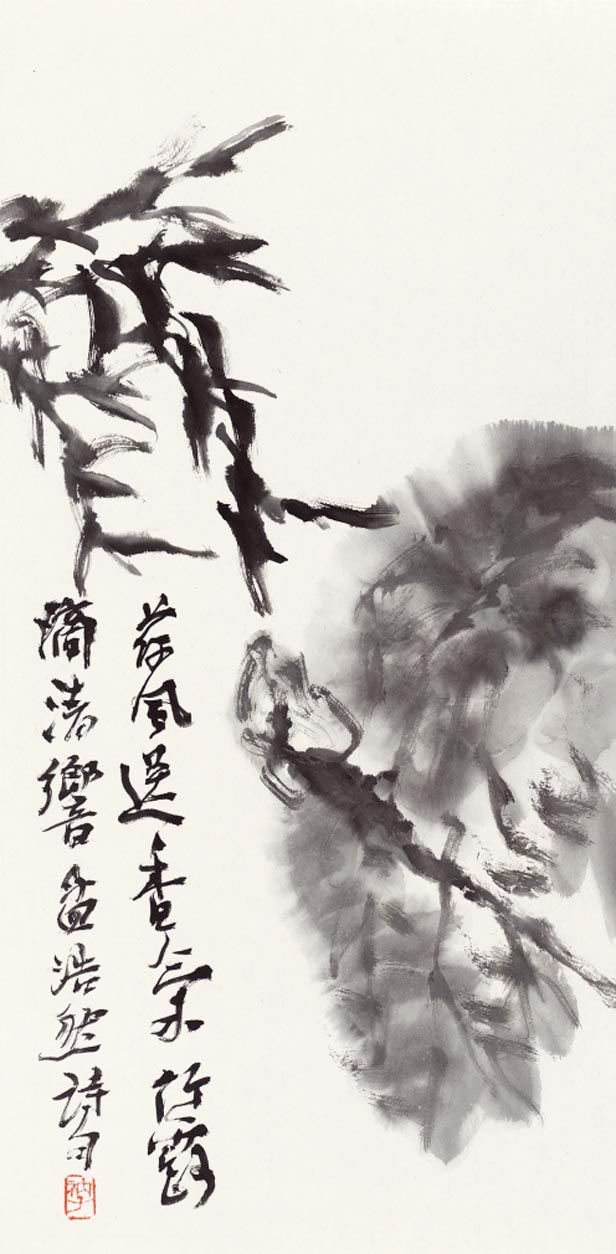 荷風送香氣竹露
滴清響孟浩然詩句